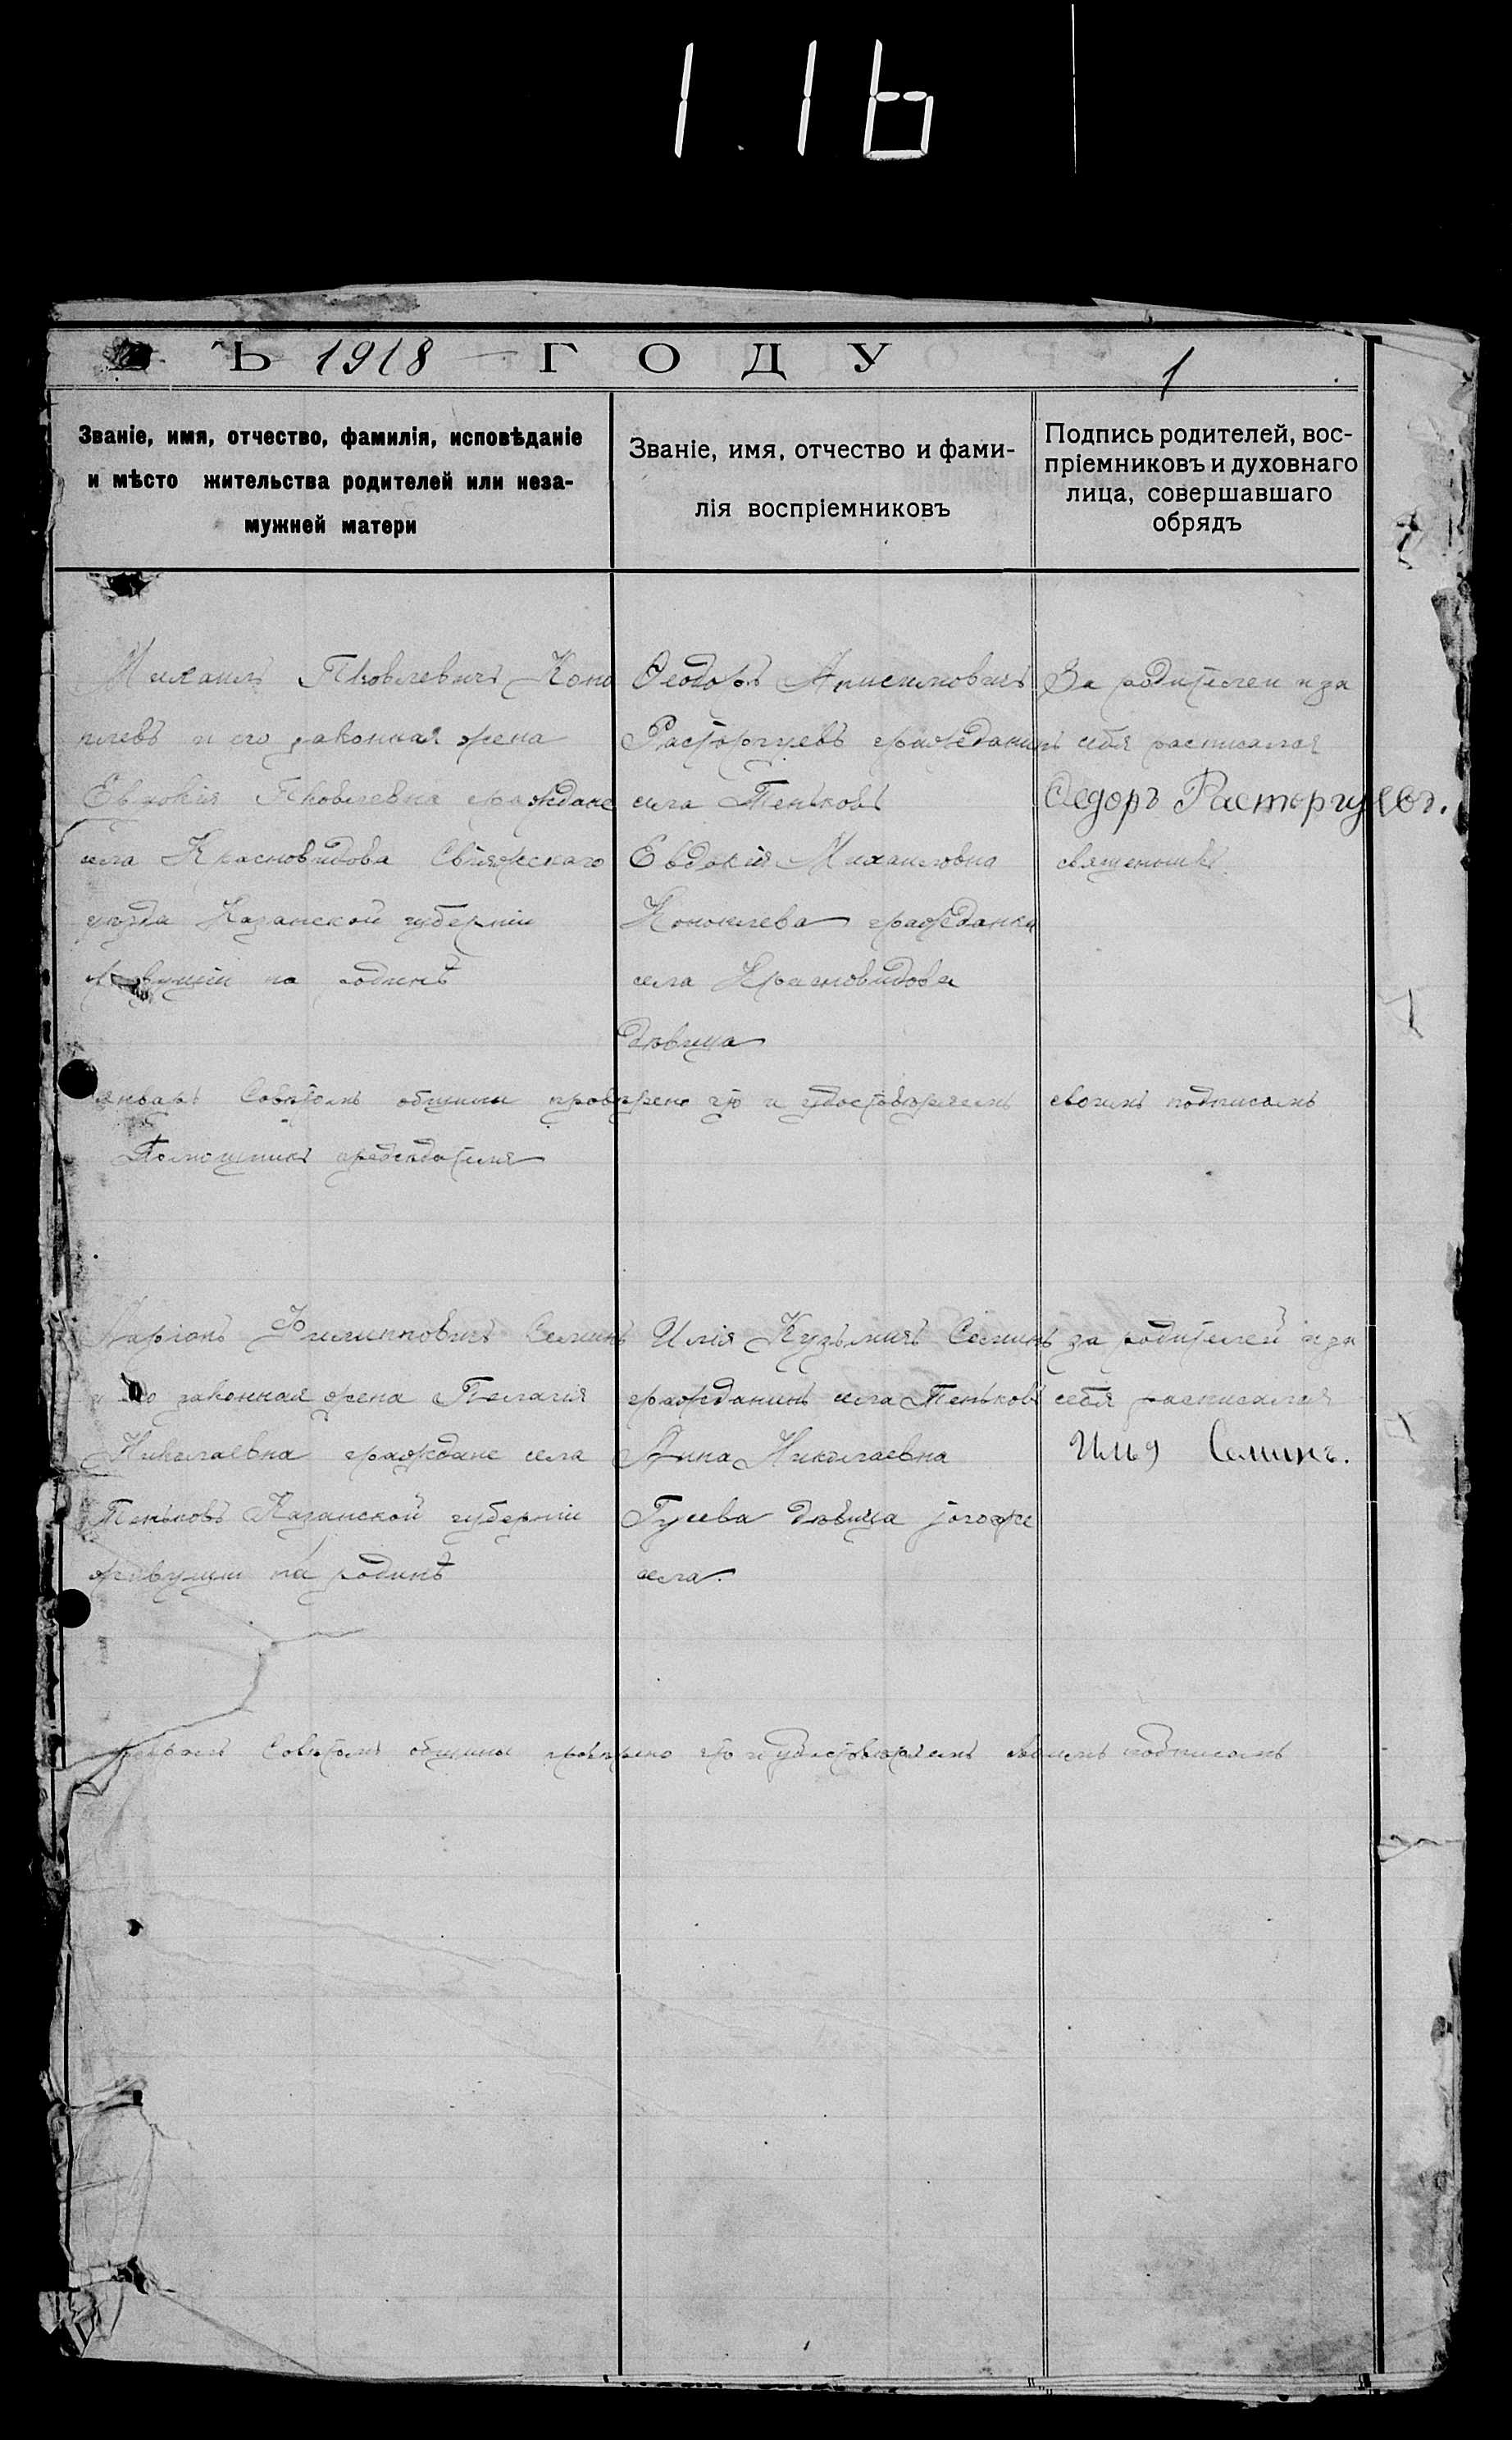 1.16
Ъ 1918 ГОДУ 1
Званіе, имя, отчество, фамилія, исповѣданіе
и мѣсто жительства родителей или неза-
мужней матери
Званіе, имя, отчество и фами-
лія воспріемниковъ
Подпись родителей, вос-
пріемниковъ и духовнаго
лица, совершавшаго
обрядъ
Михаилъ Яковлевичъ Коно
плевъ и его законная жена
Евдокія Яковлевна граждане
села Красновидова Свіяжскаго
уѣзда Казанской губерніи
на родинѣ
Феодоръ Анисимовичъ
Расторгуевъ гражданинъ
села Теньковъ
Евдокія Михаиловна
Коноплева гражданка
села Красновидова
дѣвица
За родителей и за
себя расписался
Федоръ Расторгуевъ.
священникъ
январь Совѣтомъ общины провѣрено что и удостовѣряемъ своимъ подписомъ
Помощникъ председателя
Ларіонъ Филипповичъ Семинъ
законная жена Пелагія
Николаевна граждане села
Теньковъ Казанской губерніи
живущіи на родинѣ
Илія Кузьмичъ Семинъ
гражданинъ села Теньковъ
Анна Николаевна
Гусева дѣвица того же
села.
за родителей и за
себя расписался
Илья Семинъ.
Совѣтомъ общины провѣрено что и удостовѣряемъ своимъ подписомъ